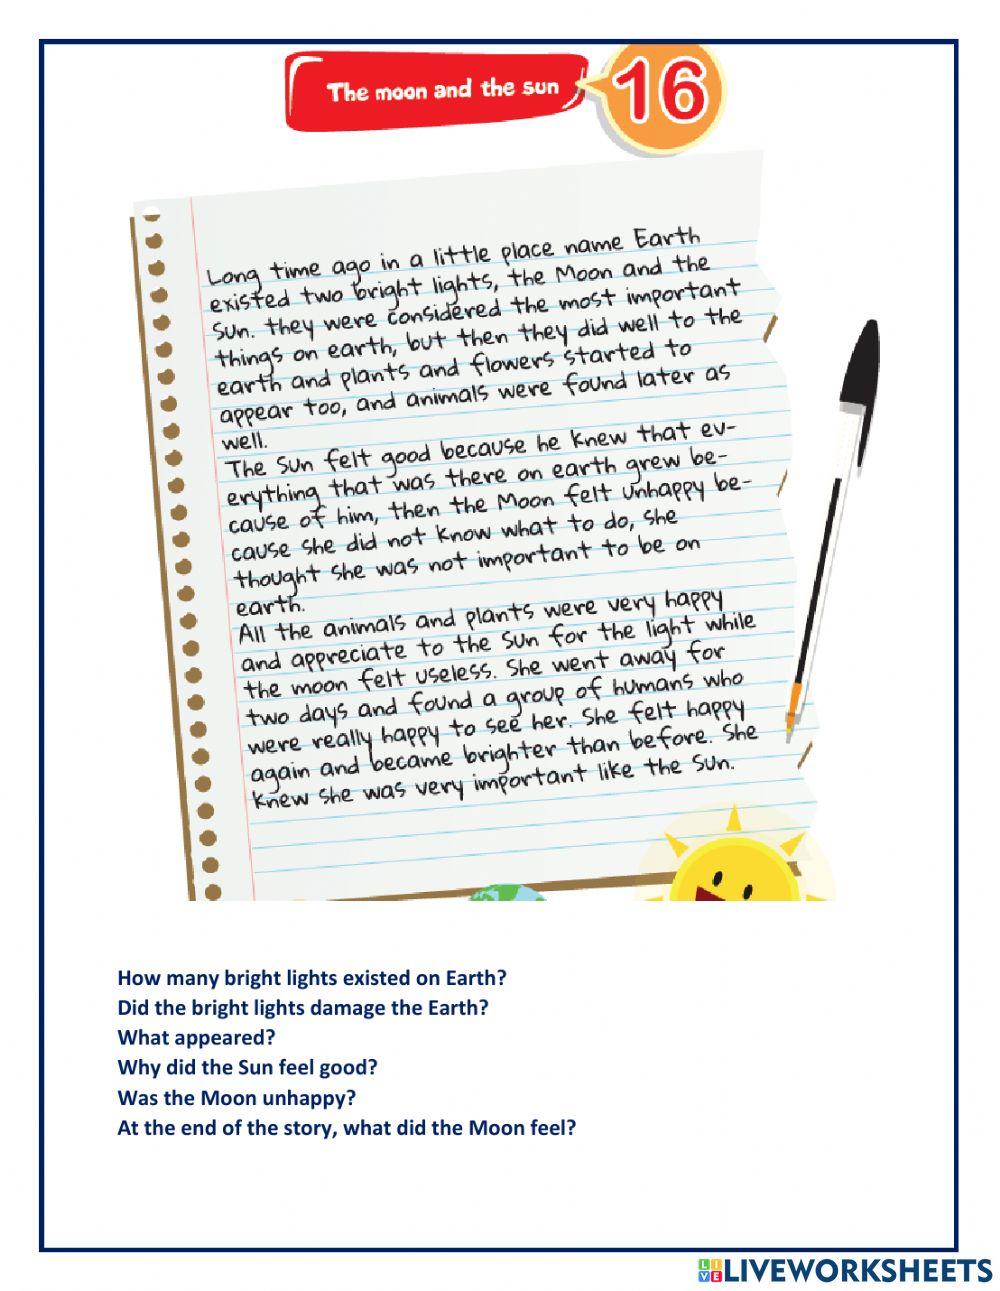 The moon and the sun
16
Long time ago in a little place name Earth
existed two bright lights, the Moon and the
Sun. they were considered the most important
things on earth, but then they did well to the
earth and plants and flowers started to
appear too, and animals were found later as
well.
The Sun felt good because he knew that ev-
erything that was there on earth grew be-
cause of him, then the Moon felt unhappy be-
cause she did not know what to do, she
thought she was not important to be on
earth.
All the animals and plants were very happy
and appreciate to the Sun for the light while
the moon felt useless. She went away for
two days and found a group of humans who
were really happy to see her. She felt happy
again and became brighter than before. She
knew she was very important like the Sun.
How many bright lights existed on Earth?
Did the bright lights damage the Earth?
What appeared?
Why did the Sun feel good?
Was the Moon unhappy?
At the end of the story, what did the Moon feel?
LIVE LIVEWORKSHEETS